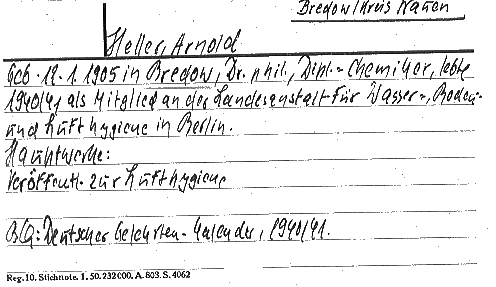 Bredow/Kreis Nauen
Heller, Arnold
Geb. 12.1.1905 in Bredow, Dr. phil., Dipl.-Chemiker, lebte
1940/41 als Mitglied an der Landesanstalt für Wasser-, Boden-
und Lufthygiene in Berlin.
Hauptwerke:
Veröffentl. zur Lufthygiene
BQ: Deutscher Gelehrten-Kalender, 1940/41.
Reg. 10. Stichnote. 1. 50. 232000. A. 803. S. 4062